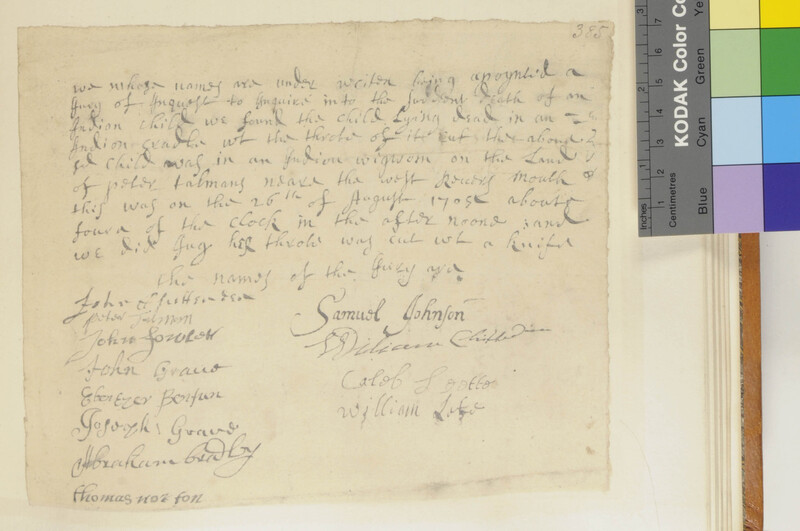 385
we whose names are under writen being apoynted a
Jury of Inquest to Inquire into the suddent death of an
Indion child we found the child Lying dead in an
Indion cradle wt the throte of it cut the above
sd child was in an Indion wigwom on the Land
of peter talmans neare the west Revers mouth
this was on the 26th of August 1705 aboute
foure of the clock in the after noone and
we did Jug her throte was cut wt a knife
the names of the Jury are
John
peter talmon
John fowler
John Grave
Ebenezer Benfun
Joseph Grave
Abraham bradly
thomas norton
Samuel Johnson
William
Caleb
william Lete
KODAK Color Co
Inches
Centimetres
1 2 3 4 5 6 7
1 3
Blue Cyan Green Ye